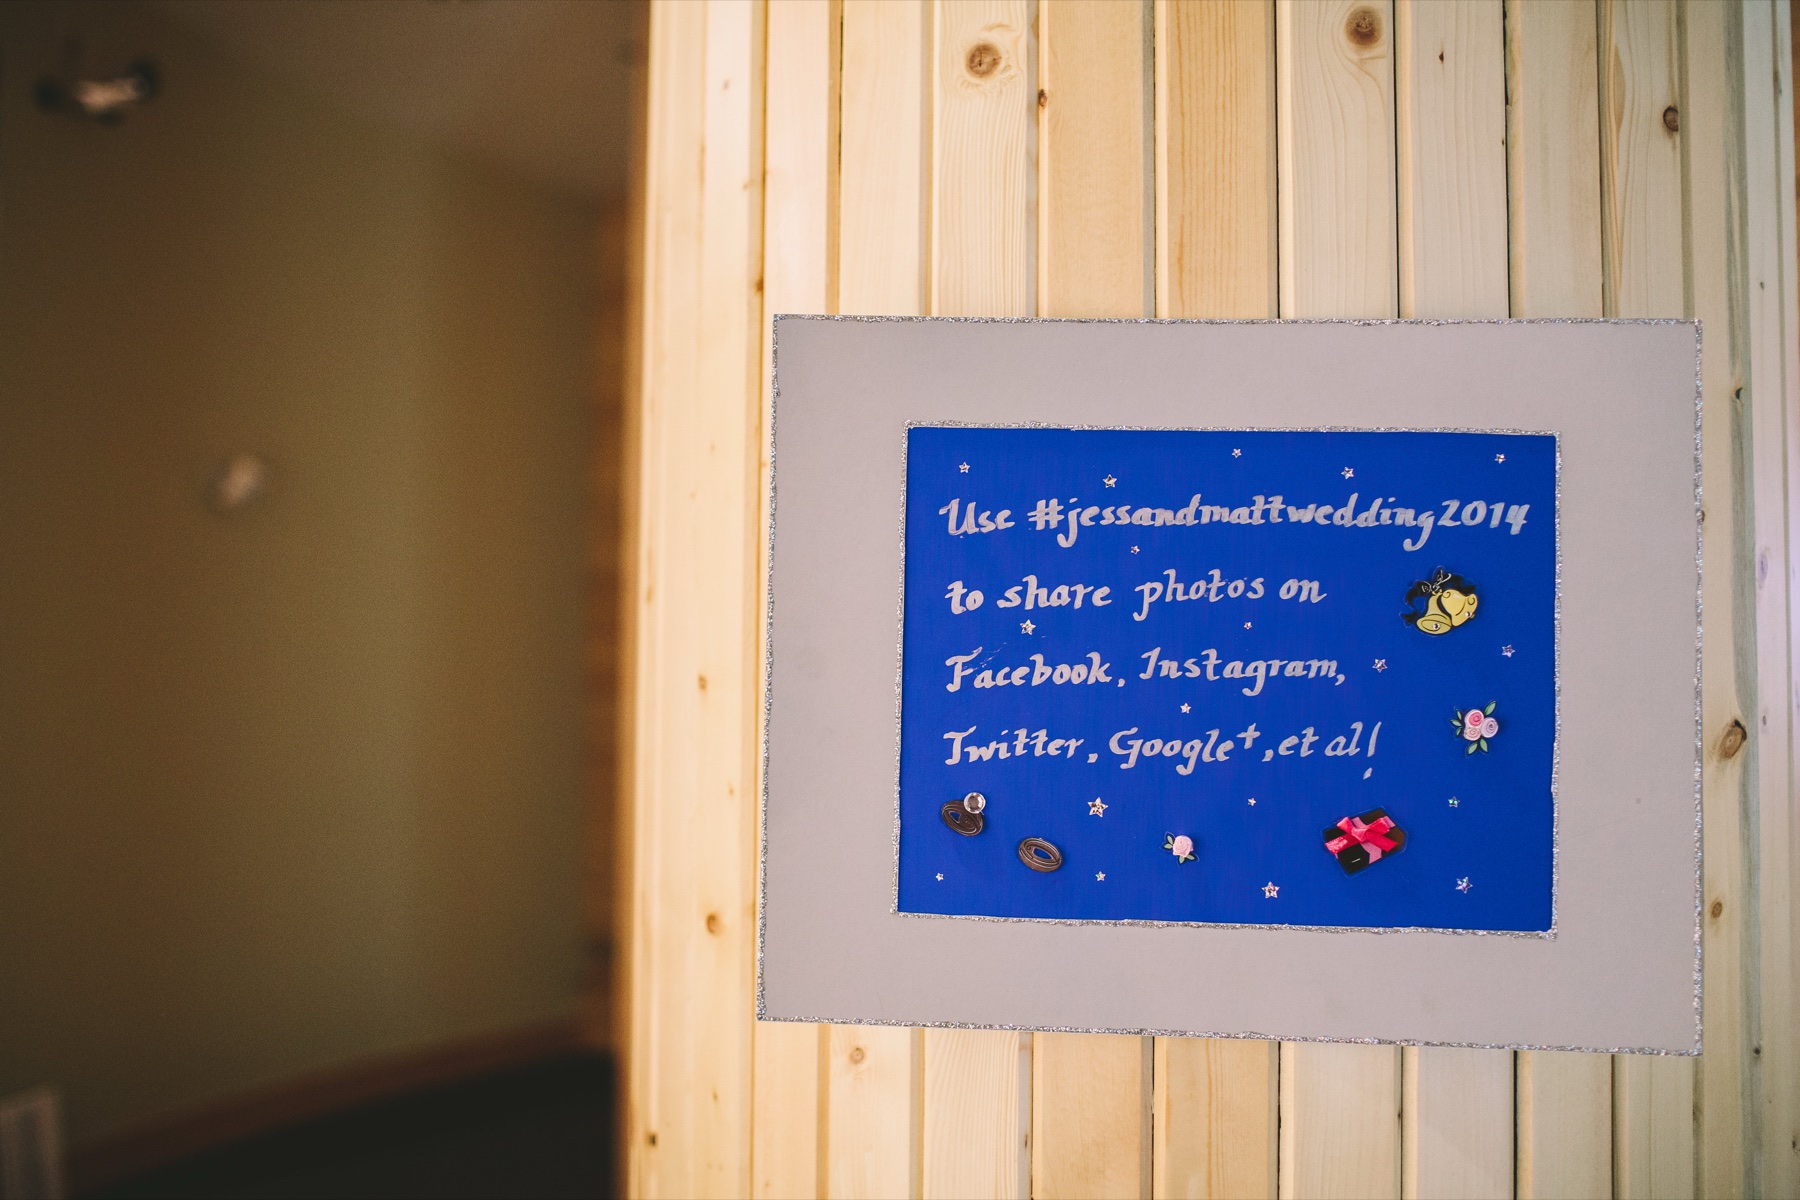 Use #jessandmattwedding2014
to share photos on
Facebook, Instagram,
Twitter, Google+, et al!